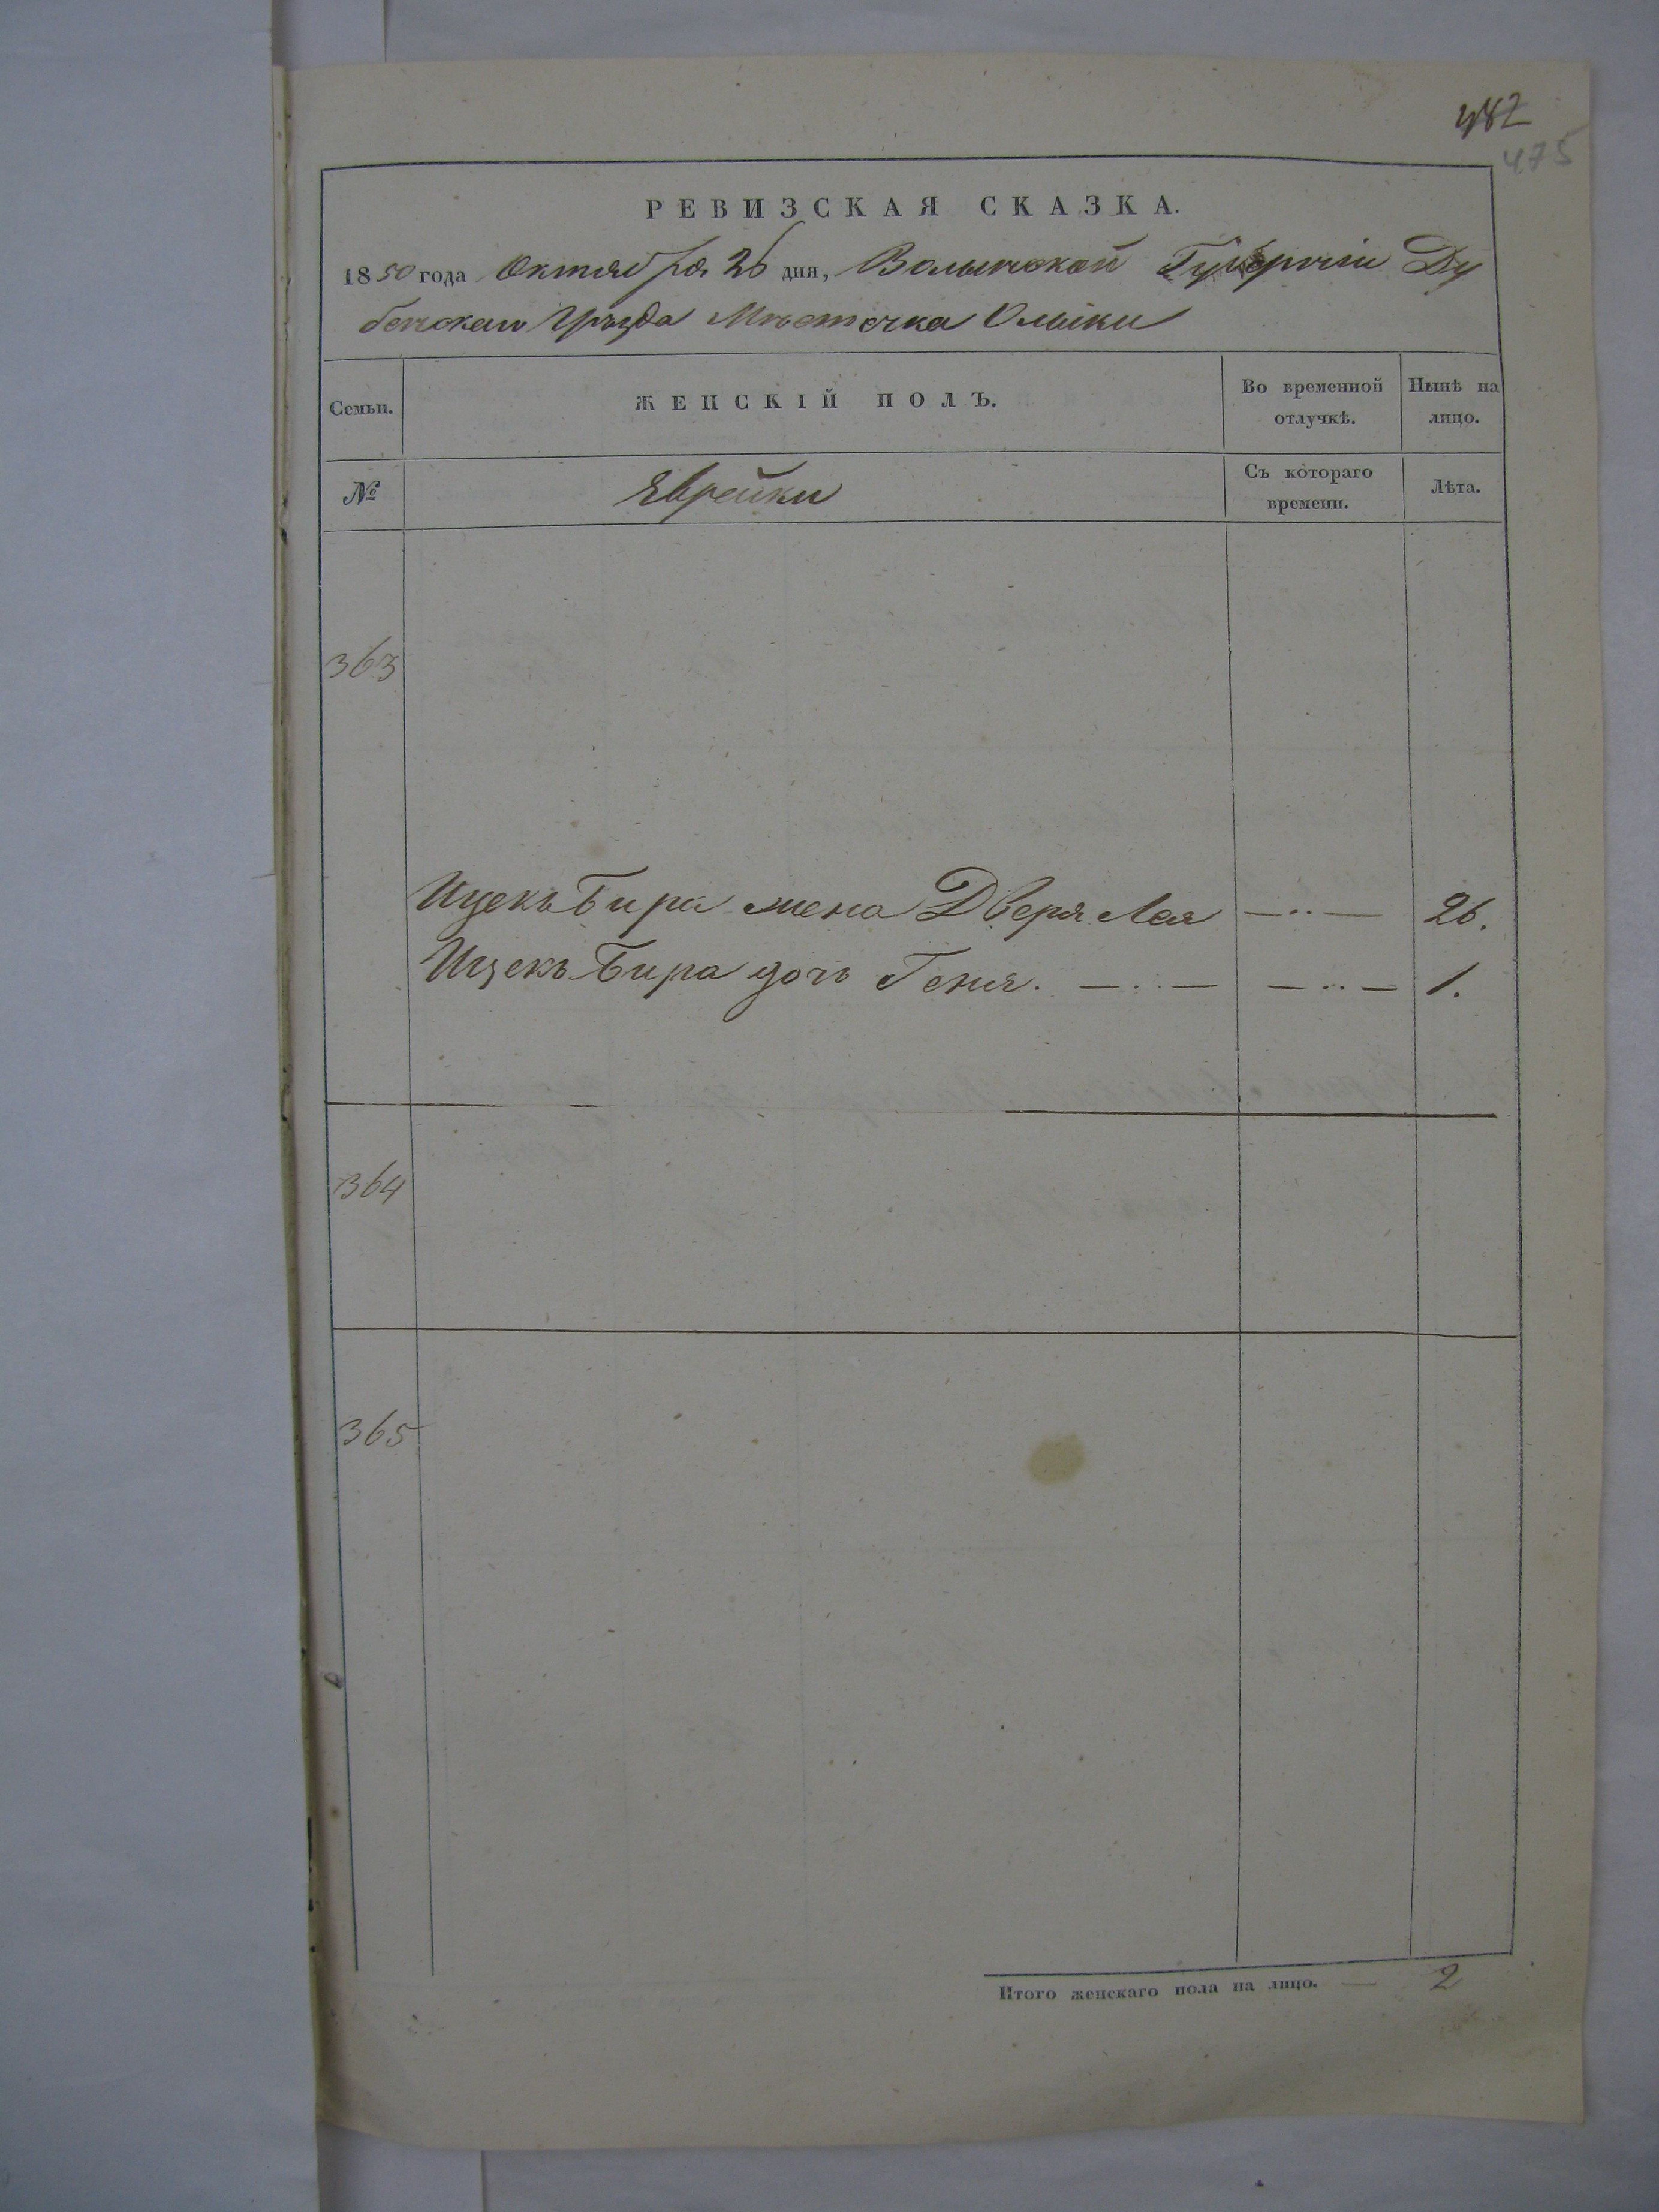 482
475
РЕВИЗСКАЯ СКАЗКА.
1850 года Октября 26 дня, Волынской Губерніи Ду
бенскаго Уѣзда Мѣстечка Олыки
Семьи.
ЖЕНСКІЙ ПОЛЪ.
Во временной отлучкѣ.
Нынѣ на лицо.
№
Еврейки
Съ котораго времени.
Лѣта.
363
Ицекъ Бира жена Двера Лея — 26.
Ицекъ Бира дочь Геня. — — 1.
364
365
Итого женскаго пола на лицо. — 2